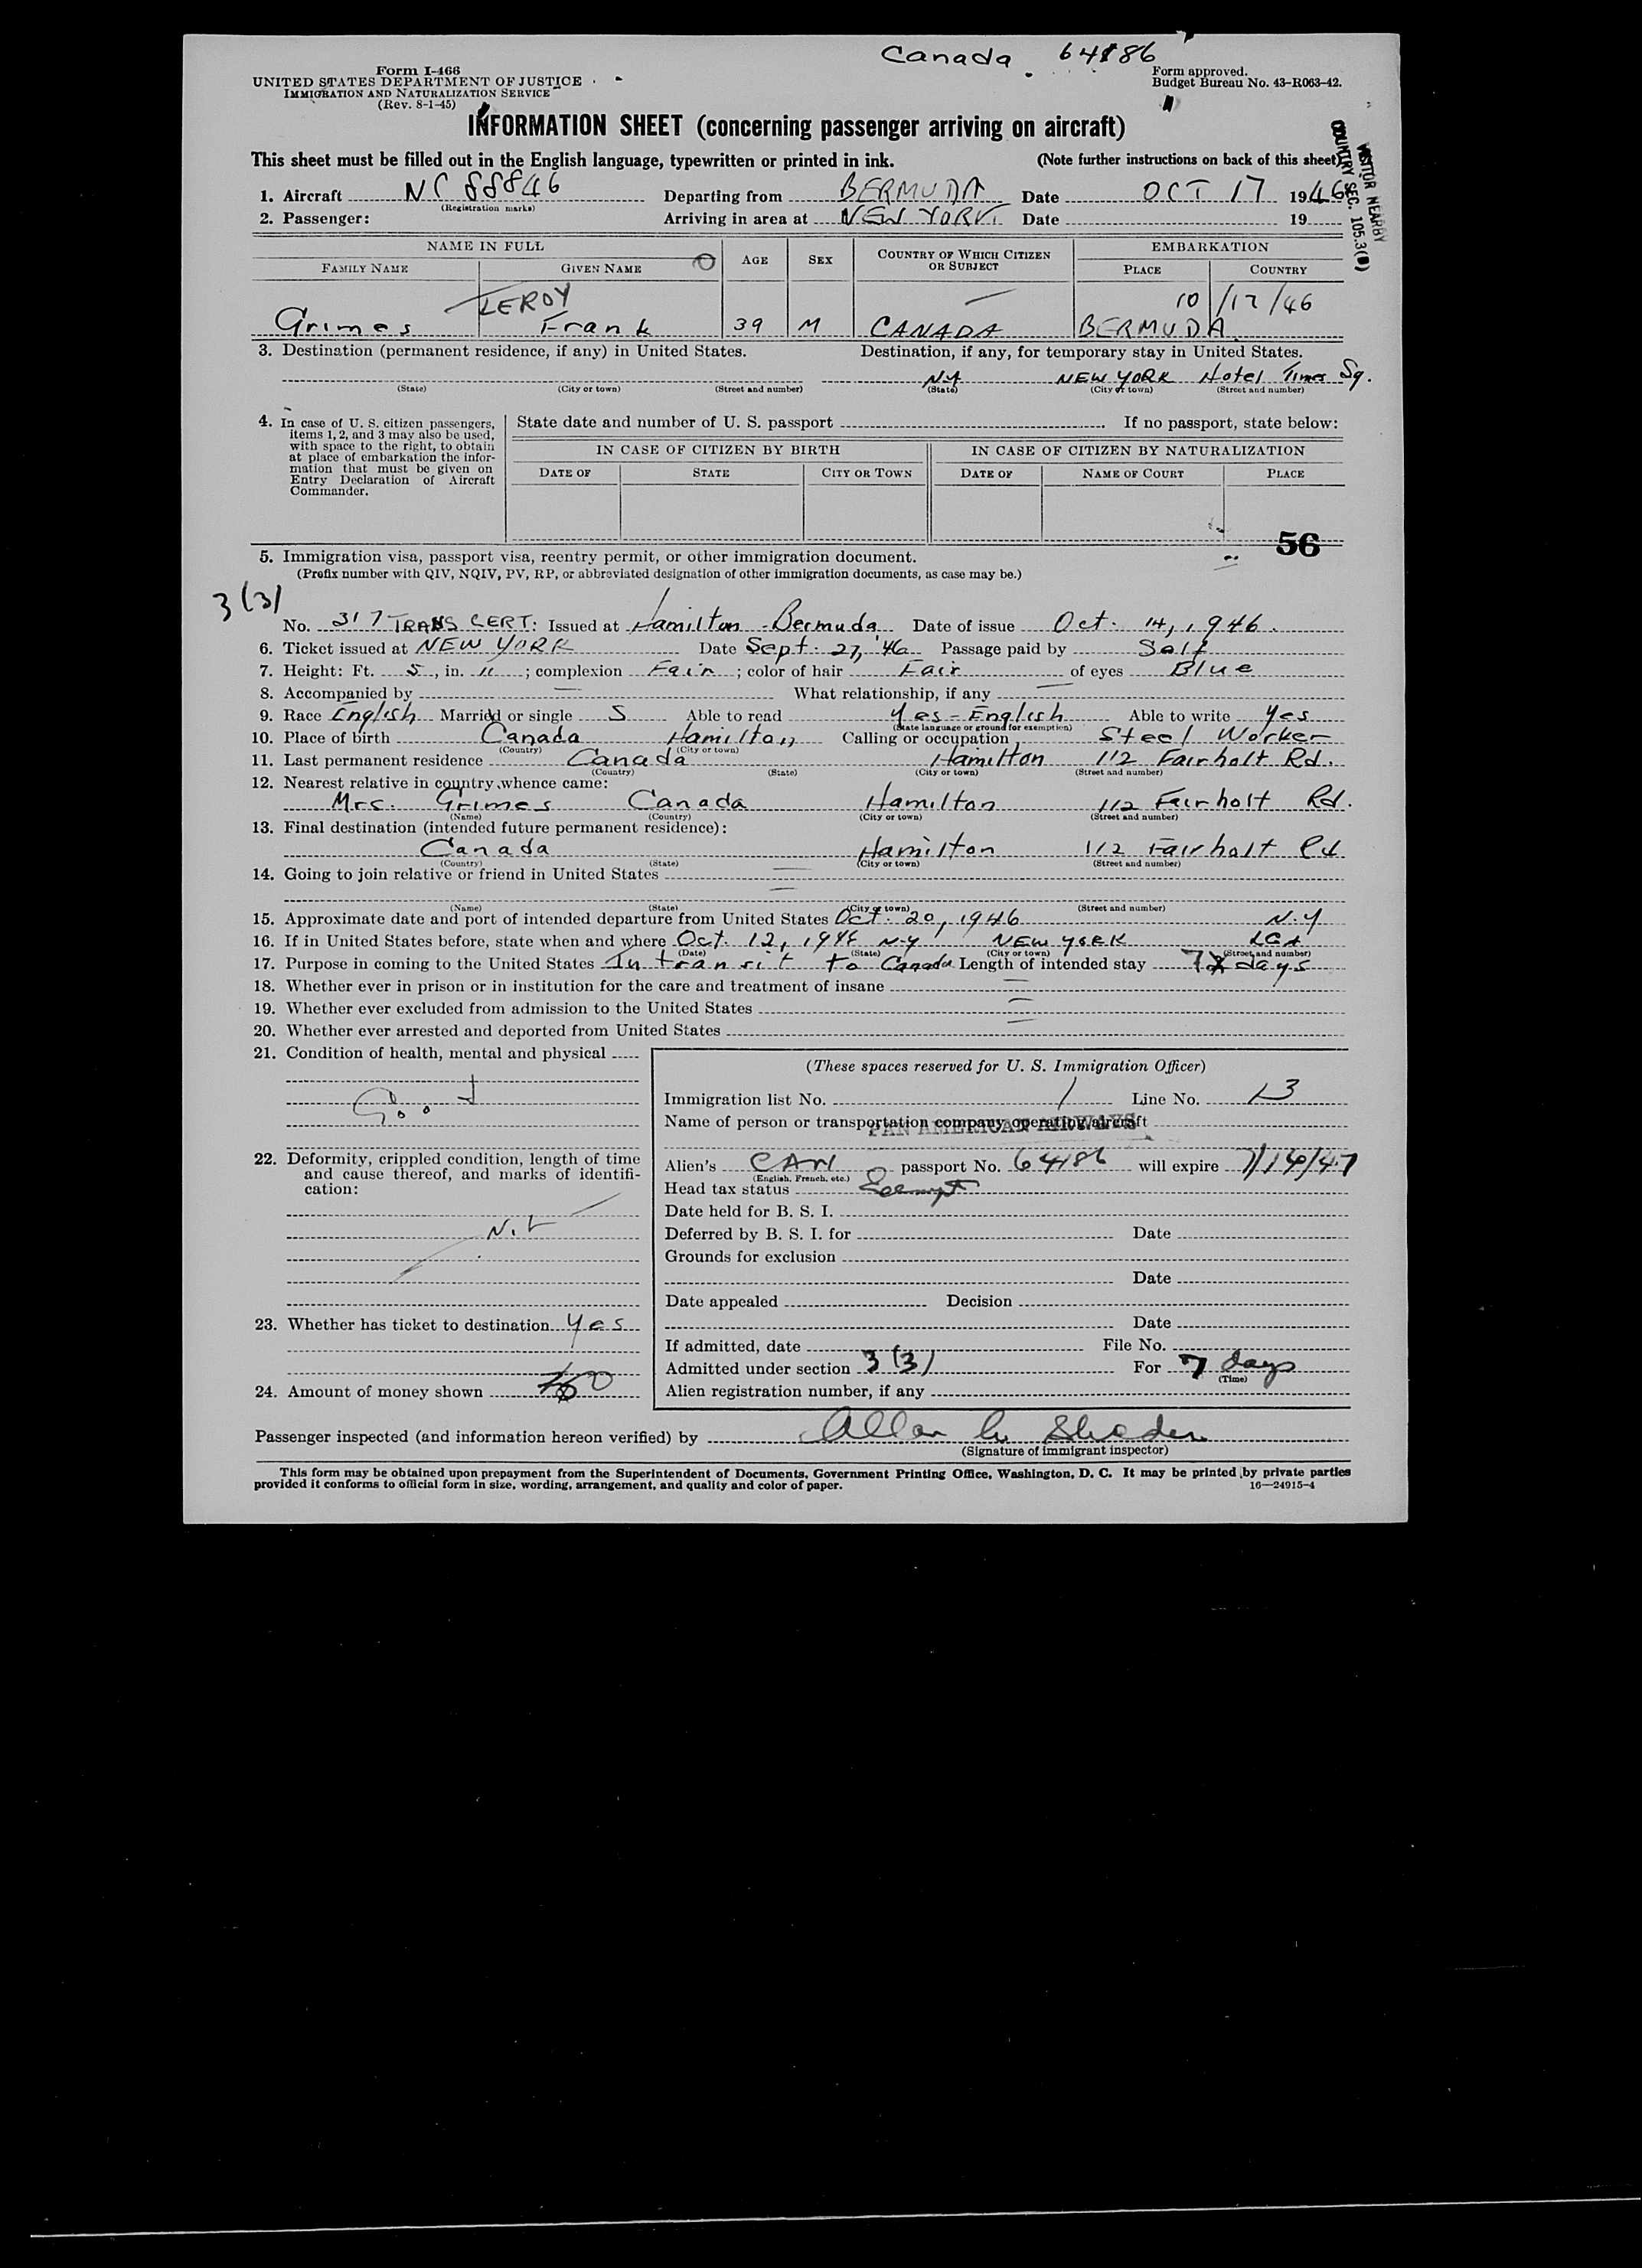 Canada 64186
Form I-466
UNITED STATES DEPARTMENT OF JUSTICE
IMMIGRATION AND NATURALIZATION SERVICE
(Rev. 8-1-45)
Form approved.
Budget Bureau No. 43-R063-42.
INFORMATION SHEET (concerning passenger arriving on aircraft)
VISITOR NEARBY
COUNTRY SEC. 105.3
This sheet must be filled out in the English language, typewritten or printed in ink. (Note further instructions on back of this sheet)
1. Aircraft NC 88846 Departing from BERMUDA Date OCT 17 1946
(Registration marks)
2. Passenger: Arriving in area at NEW YORK Date 19
NAME IN FULL AGE SEX COUNTRY OF WHICH CITIZEN OR SUBJECT EMBARKATION
FAMILY NAME GIVEN NAME PLACE COUNTRY
LEROY 10/17/46
Grimes Frank 39 M CANADA BERMUDA
3. Destination (permanent residence, if any) in United States. Destination, if any, for temporary stay in United States.
NY NEW YORK Hotel Times Sq.
(State) (City or town) (Street and number) (State) (City or town) (Street and number)
4. In case of U. S. citizen passengers, items 1, 2, and 3 may also be used, with space to the right, to obtain at place of embarkation the information that must be given on Entry Declaration of Aircraft Commander.
State date and number of U. S. passport If no passport, state below:
IN CASE OF CITIZEN BY BIRTH IN CASE OF CITIZEN BY NATURALIZATION
DATE OF STATE CITY OR TOWN DATE OF NAME OF COURT PLACE
56
5. Immigration visa, passport visa, reentry permit, or other immigration document.
(Prefix number with QIV, NQIV, PV, RP, or abbreviated designation of other immigration documents, as case may be.)
3(3)
No. 317 TRANS CERT: Issued at Hamilton - Bermuda Date of issue Oct. 14, 1946.
6. Ticket issued at NEW YORK Date Sept. 27, '46 Passage paid by Self
7. Height: Ft. 5, in. 11; complexion Fair; color of hair Fair of eyes Blue
8. Accompanied by — What relationship, if any —
9. Race English Married or single S Able to read Yes - English Able to write Yes
(State language or ground for exemption)
10. Place of birth Canada Hamilton Calling or occupation Steel Worker
(Country) (City or town)
11. Last permanent residence Canada Hamilton 112 Fairholt Rd.
(Country) (State) (City or town) (Street and number)
12. Nearest relative in country whence came:
Mrs. Grimes Canada Hamilton 112 Fairholt Rd.
(Name) (Country) (City or town) (Street and number)
13. Final destination (intended future permanent residence):
Canada Hamilton 112 Fairholt Rd
(Country) (State) (City or town) (Street and number)
14. Going to join relative or friend in United States
(Name) (State) (City or town) (Street and number)
15. Approximate date and port of intended departure from United States Oct. 20, 1946 N.Y
16. If in United States before, state when and where Oct. 12, 1946 N-Y NEW YORK LGA
(Date) (State) (City or town) (Street and number)
17. Purpose in coming to the United States In transit to Canada Length of intended stay 7 days
18. Whether ever in prison or in institution for the care and treatment of insane —
19. Whether ever excluded from admission to the United States —
20. Whether ever arrested and deported from United States —
21. Condition of health, mental and physical
Good
(These spaces reserved for U. S. Immigration Officer)
Immigration list No. 1 Line No. 13
Name of person or transportation company operating aircraft
PAN AMERICAN AIRWAYS
22. Deformity, crippled condition, length of time and cause thereof, and marks of identification:
Nil
Alien's CAN passport No. 64186 will expire 7/14/47
(English, French, etc.)
Head tax status Exempt
Date held for B. S. I.
Deferred by B. S. I. for Date
Grounds for exclusion
Date
Date appealed Decision
23. Whether has ticket to destination Yes
Date
If admitted, date File No.
Admitted under section 3(3) For 7 days
(Time)
24. Amount of money shown
Alien registration number, if any
Passenger inspected (and information hereon verified) by Allan
(Signature of immigrant inspector)
This form may be obtained upon prepayment from the Superintendent of Documents, Government Printing Office, Washington, D. C. It may be printed by private parties
provided it conforms to official form in size, wording, arrangement, and quality and color of paper. 16—24915-4